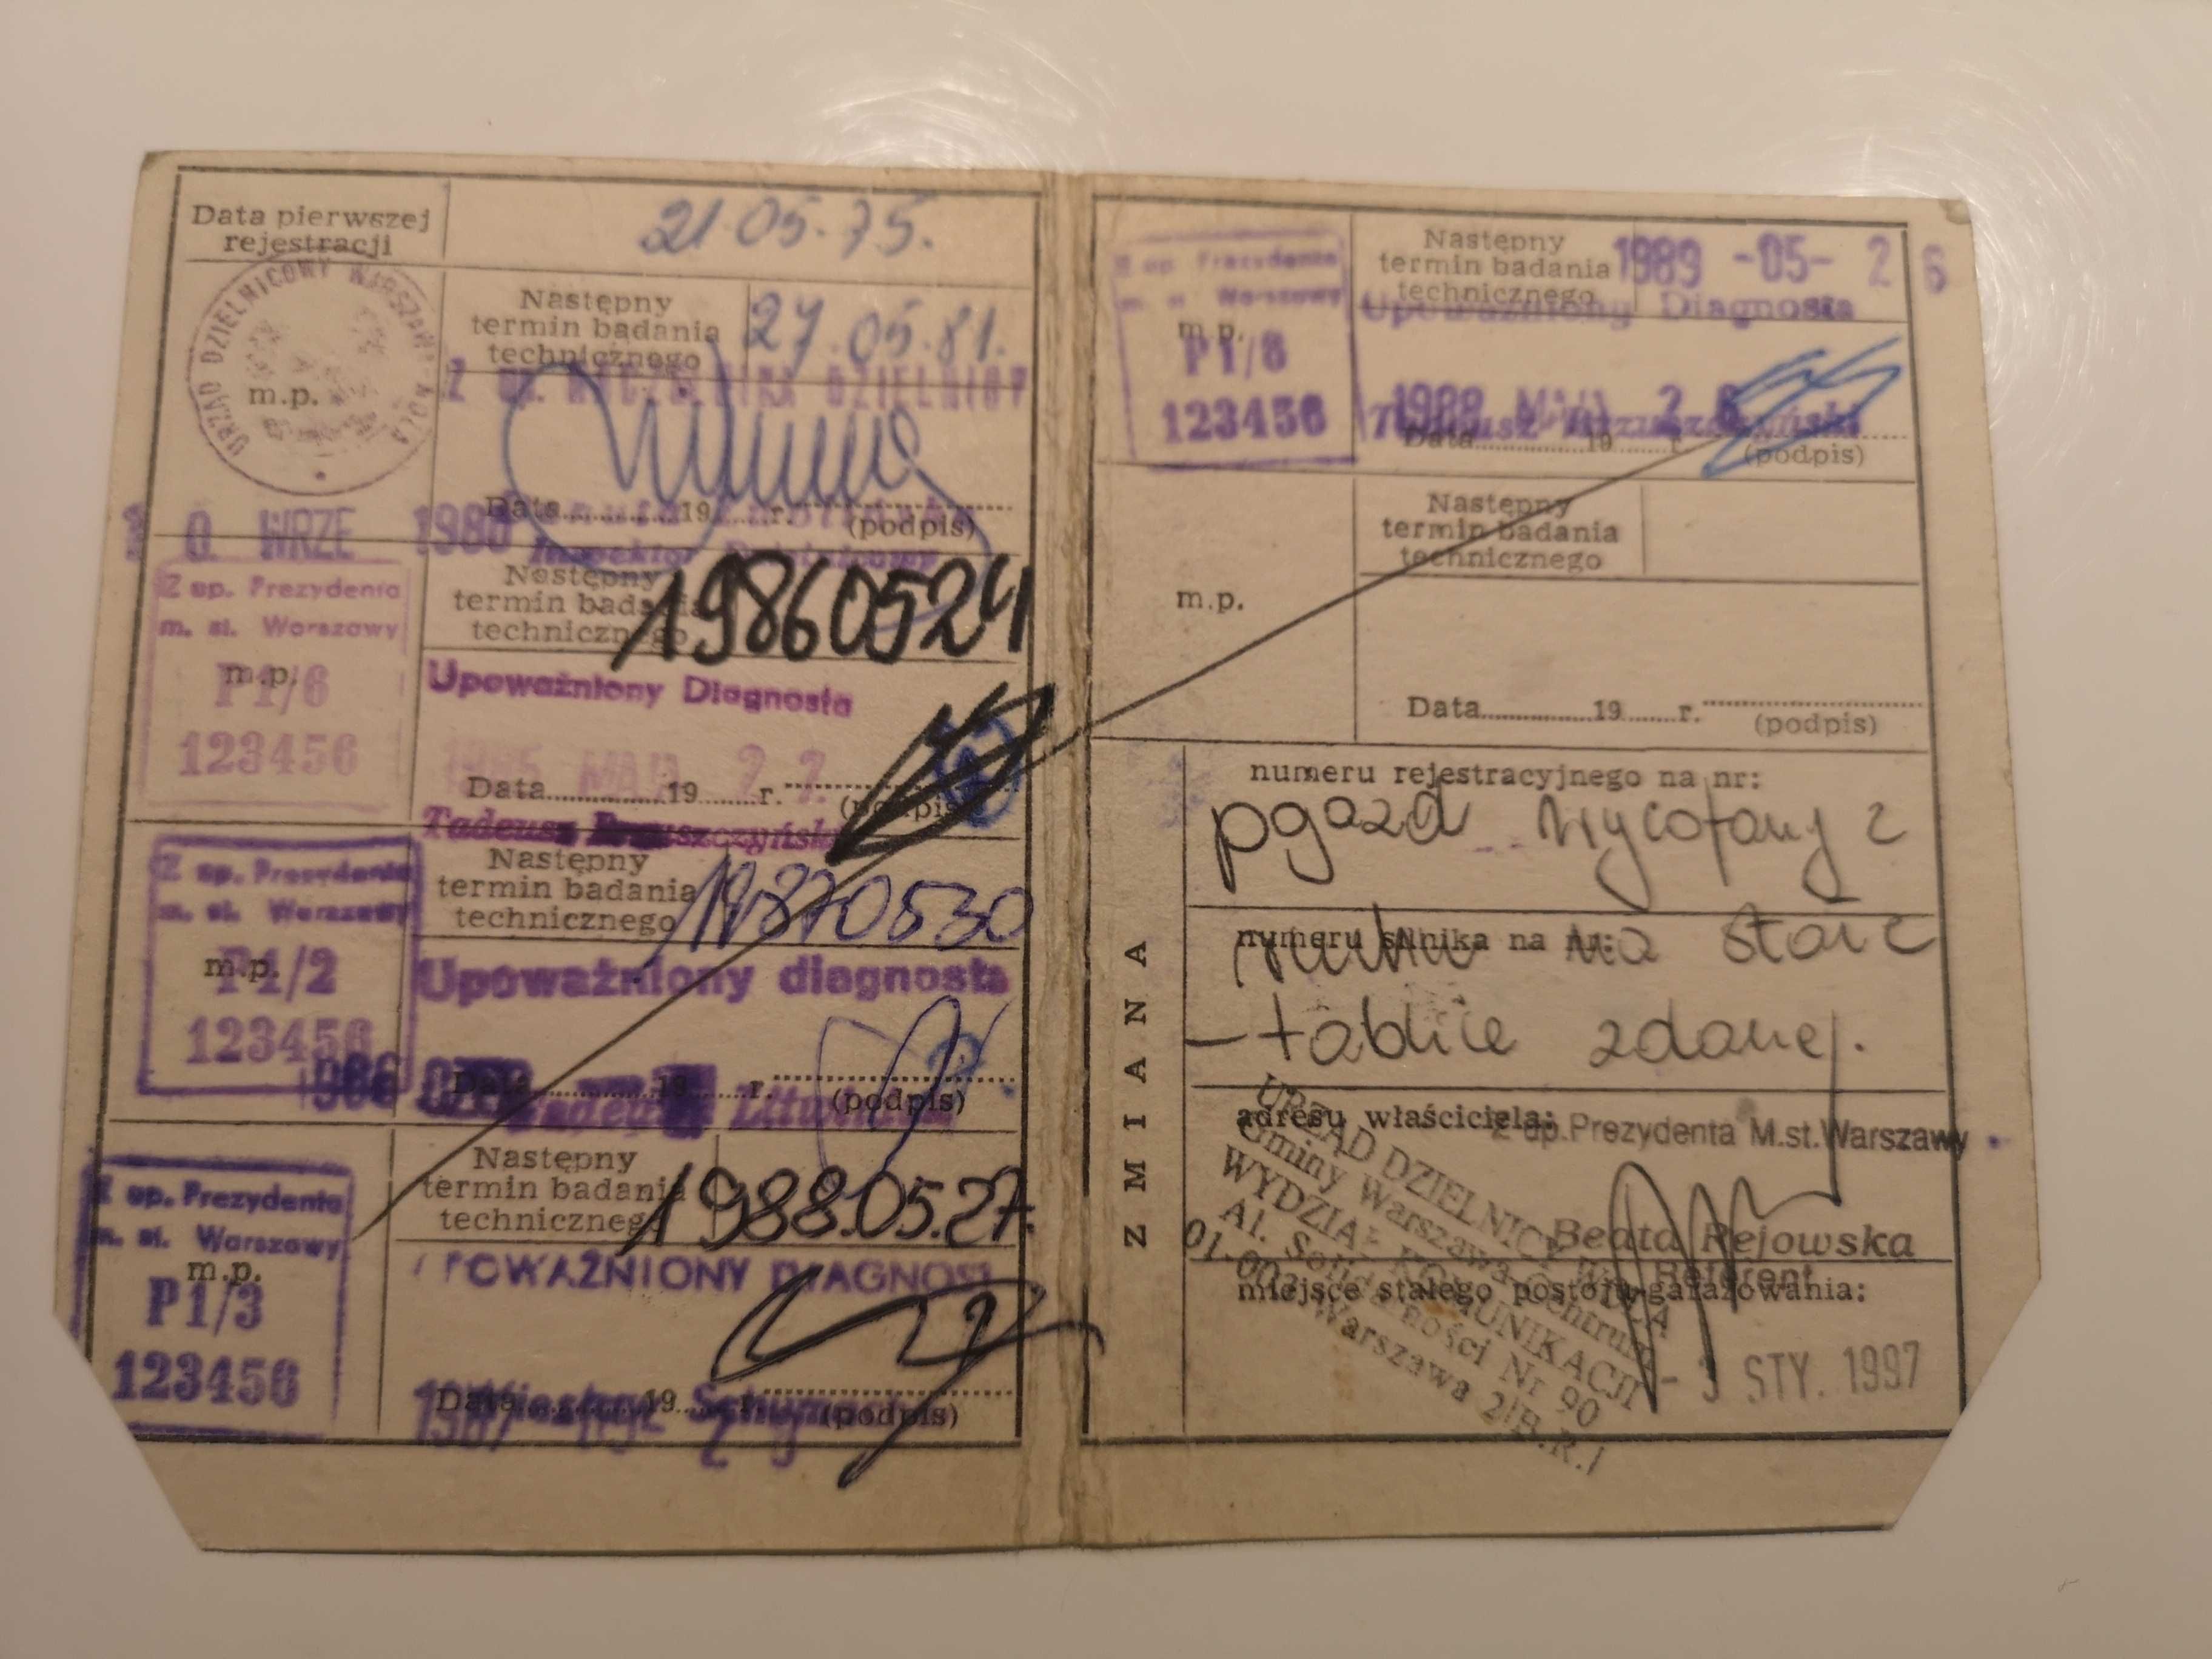 Data pierwszej
rejestracji
21.05.75.
URZĄD DZIELNICOWY WARSZAWA WOLA
m.p.
Następny
termin badania
technicznego
27.05.81.
Z up. NACZELNIKA DZIELNICY
Data 19 r. (podpis)
10. WRZE 1980
Inspektor
Z up. Prezydenta
m. st. Warszawy
m.p.
P1/6
123456
Następny
termin badania
technicznego
19860524
Upoważniony Diagnosta
1985 MAJ 27.
Data 19 r. (podpis)
Tadeusz
Z up. Prezydenta
m. st. Warszawy
m.p.
P1/2
123456
Następny
termin badania
technicznego
19870530
Upoważniony diagnosta
1986
Data 19 r. (podpis)
Z up. Prezydenta
m. st. Warszawy
m.p.
P1/3
123456
Następny
termin badania
technicznego
1988.05.27.
UPOWAŻNIONY DIAGNOSTA
Data 19 r. (podpis)
1987
Z up. Prezydenta
m. st. Warszawy
m.p.
P1/8
123456
Następny
termin badania
technicznego
1989 -05- 26
Upoważniony Diagnosta
1988 MAJ 26
Tadeusz
Data 19 r. (podpis)
m.p.
Następny
termin badania
technicznego
Data 19 r. (podpis)
ZMIANA
numeru rejestracyjnego na nr:
pojazd wycofany z
numeru silnika na nr:
ruchu na stałe
- tablice zdane.
adresu właściciela:
Z up. Prezydenta M.st.Warszawy
Beata Rejowska
Referent
miejsce stałego postoju-garażowania:
URZĄD DZIELNICY WOLA
Gminy Warszawa Centrum
WYDZIAŁ KOMUNIKACJI
Al. Solidarności Nr 90
Warszawa 2/B.R./
- 3 STY. 1997